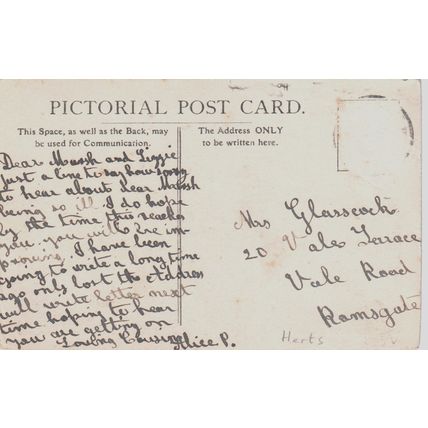 PICTORIAL POST CARD.
This Space, as well as the Back, may
be used for Communication.
The Address ONLY
to be written here.
Dear Marsh and Lizzie
Just a line to say how sorry
to hear about dear Marsh
being so ill. I do hope
by the time this reaches
you you will be im-
proving. I have been
going to write a long time
ago only lost the Address
will write letter next
time hoping to hear
you are getting on
Loving Cousin Alice P.
Mrs Glasscock
20 Vale Terrace
Vale Road
Ramsgate
Herts